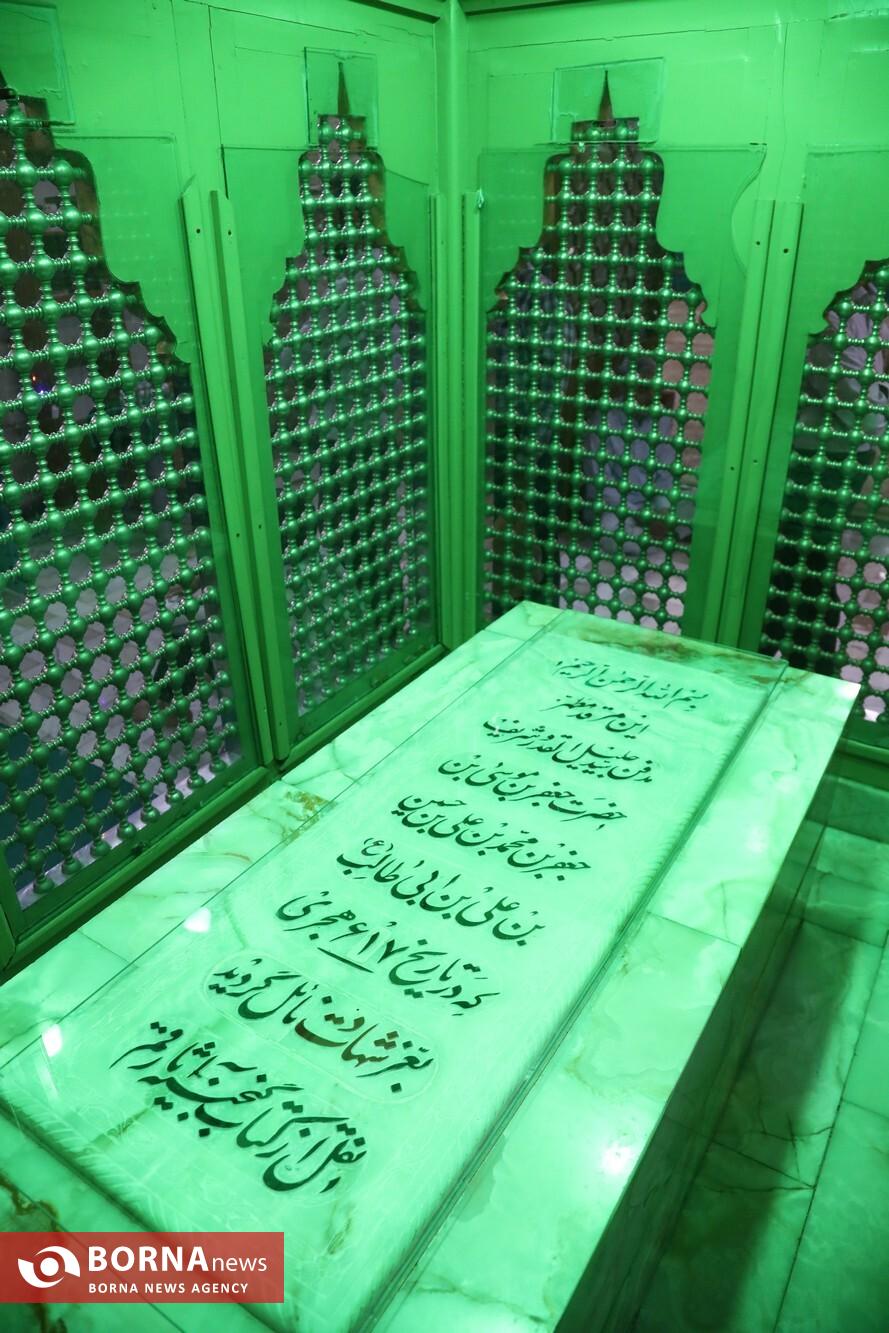 بسم الله الرحمن الرحیم
این مرقد مطهر
مدفن سید جلیل القدر و شریف
حضرت جعفر بن موسی بن
جعفر بن محمد بن علی بن حسین
بن علی بن ابی طالب (ع)
که در تاریخ ۶۱۷ هجری
بفیض شهادت نائل گردید
نقل از کتاب گنجینه آثار قم
BORNA news
BORNA NEWS AGENCY